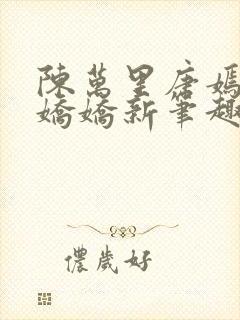 陳萬里唐媽
嬌嬌新筆趣
儂歲好